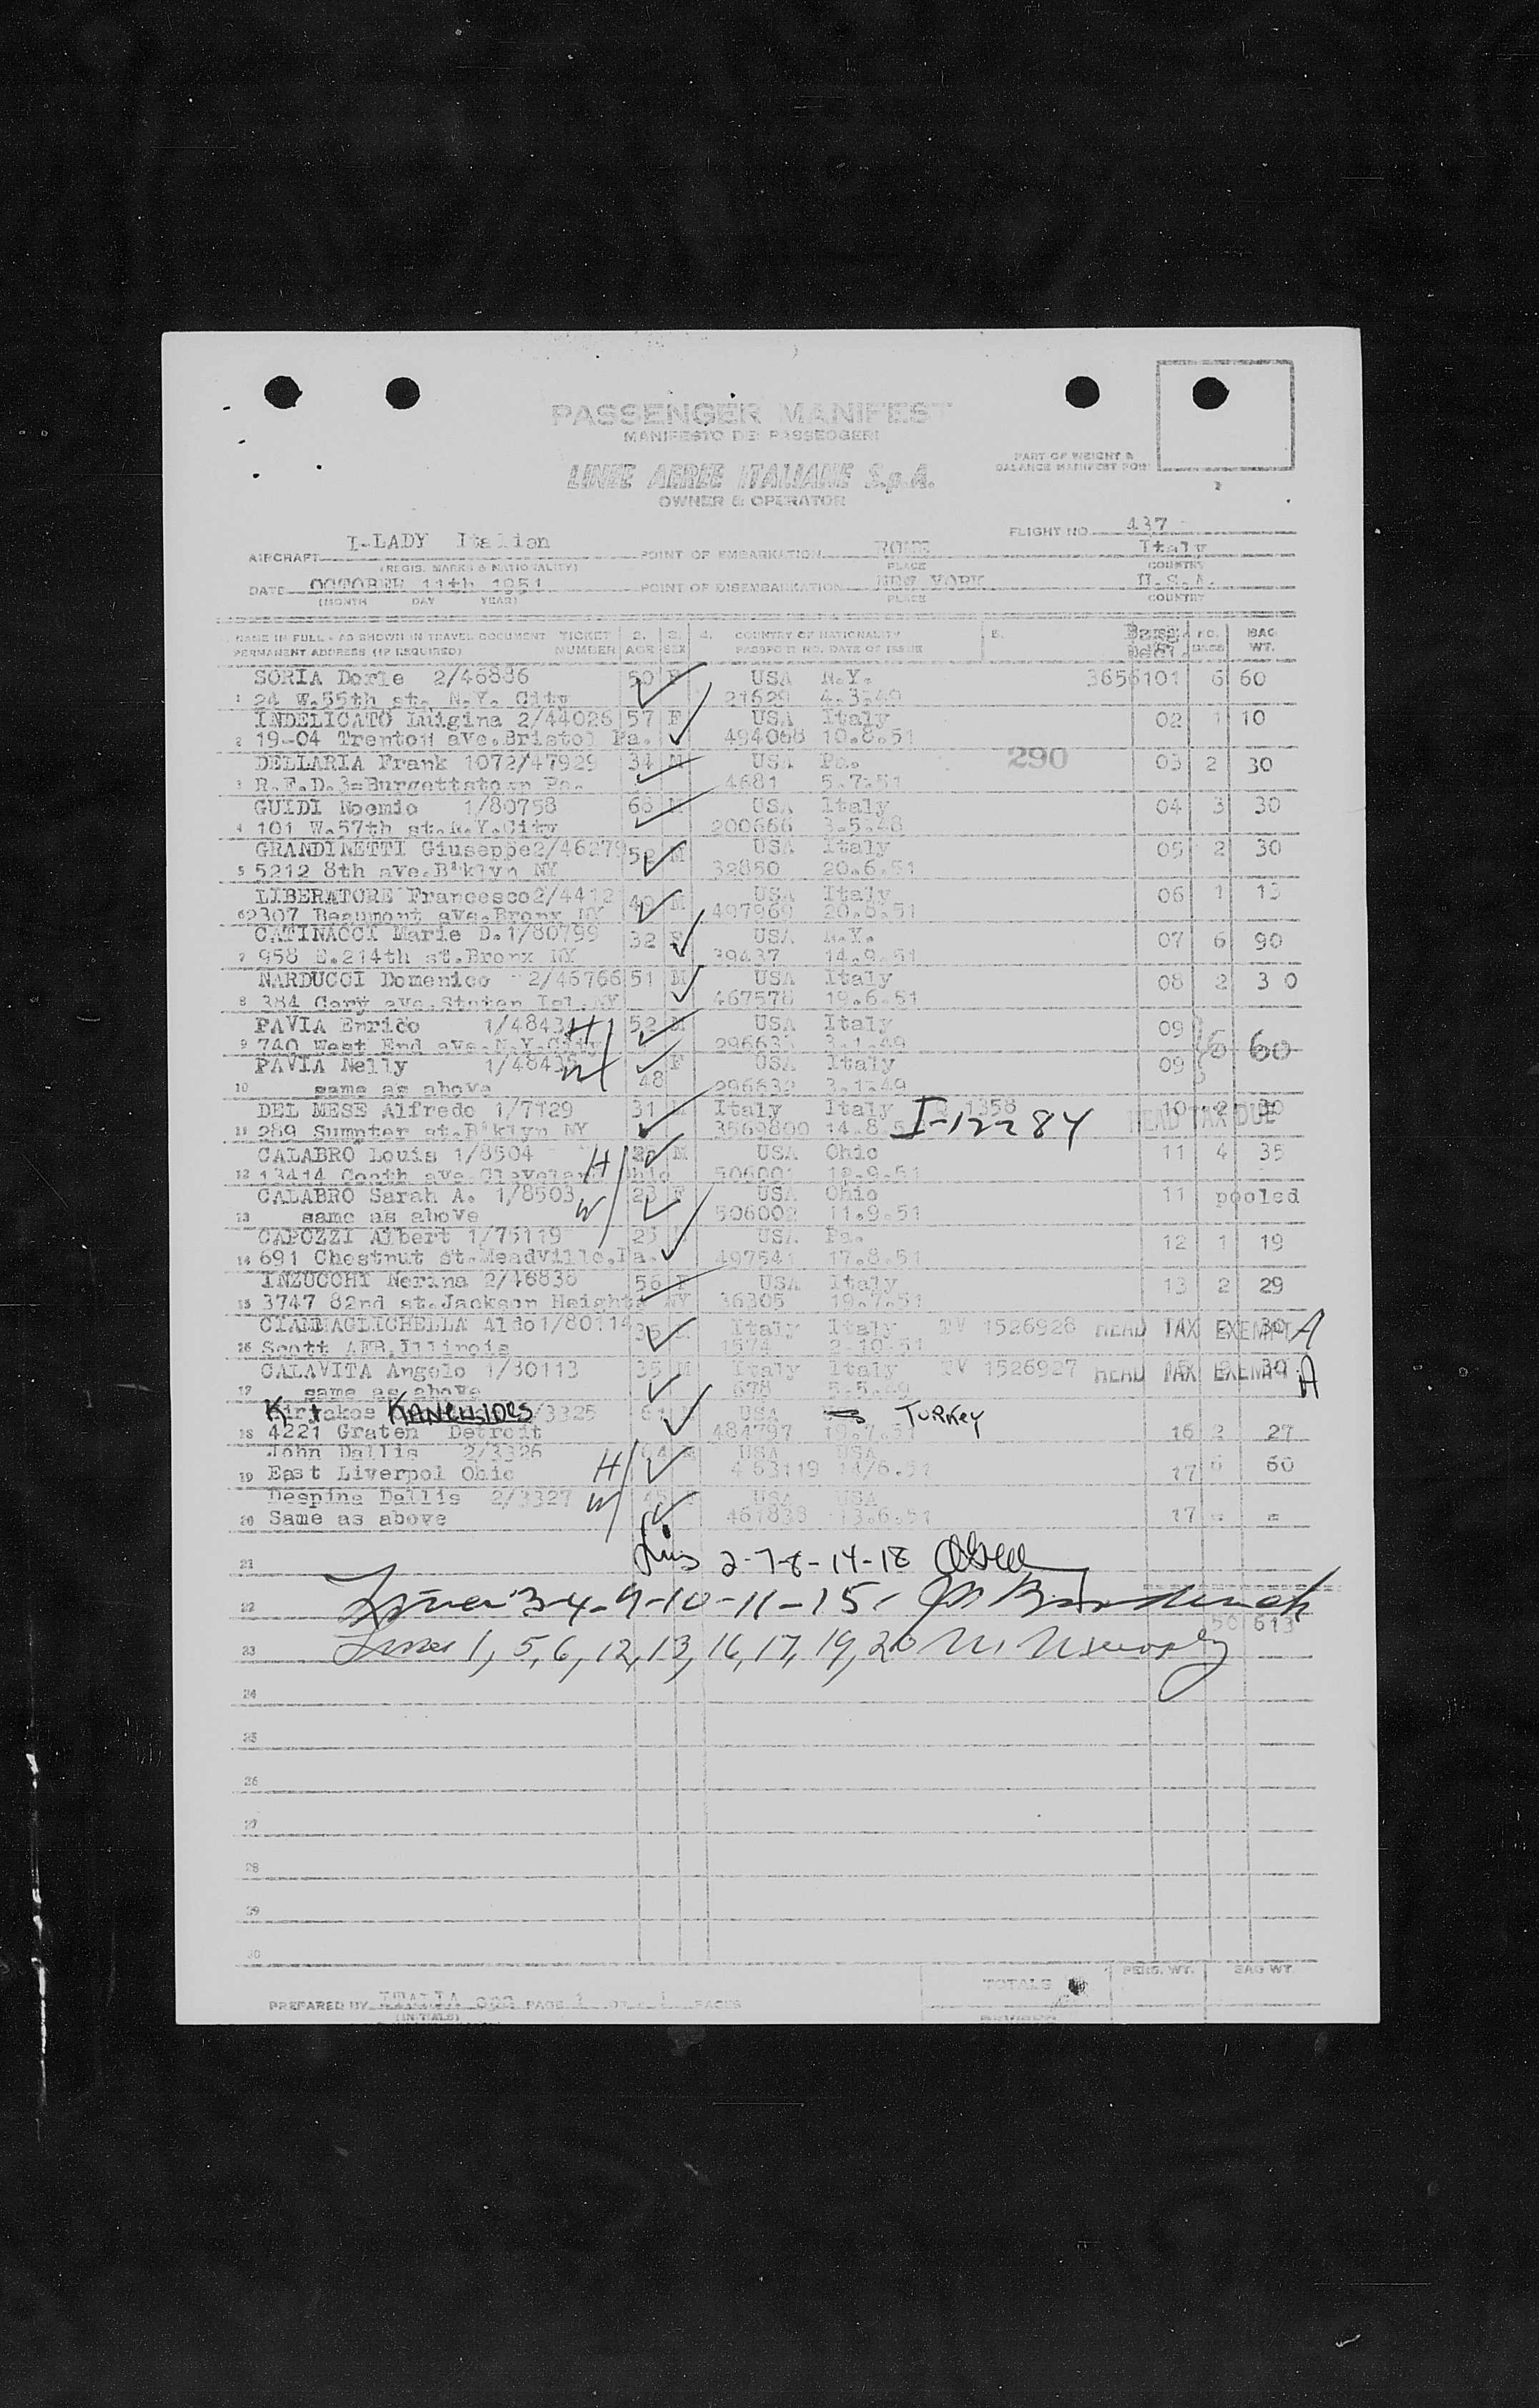 PASSENGER MANIFEST
MANIFESTO DEI PASSEGGERI
LINEE AEREE ITALIANE S.p.A.
OWNER & OPERATOR
PART OF WEIGHT &
BALANCE MANIFEST FOR:
FLIGHT NO. 437
AIRCRAFT I-LADY Italian POINT OF EMBARKATION ROME Italy
(REGIS. MARKS & NATIONALITY) PLACE COUNTRY
DATE OCTOBER 11th 1951 POINT OF DISEMBARKATION NEW YORK U.S.A.
(MONTH DAY YEAR) PLACE COUNTRY
NAME IN FULL - AS SHOWN IN TRAVEL DOCUMENT TICKET 2. 3. 4. COUNTRY OF NATIONALITY 5. NO. BAG
PERMANENT ADDRESS (IF REQUIRED) NUMBER AGE SEX PASSPORT NO. DATE OF ISSUE Decl. WT.
SORIA Dorle 2/46886 50 F USA N.Y. 3656101 6 60
1 24 W.55th st. N.Y. City 21629 4.3.49
INDELICATO Luigina 2/44026 57 F USA Italy 02 1 10
2 19-04 Trenton ave.Bristol Pa. 494068 10.8.51
DELLARIA Frank 1072/47929 34 M USA Pa. 290 03 2 30
3 R.F.D.3=Burgettstown Pa. 4681 5.7.51
GUIDI Noemio 1/80758 M USA Italy 04 3 30
4 101 W.57th st.N.Y.City 200666 3.5.48
GRANDINETTI Giuseppe2/46279 M USA Italy 05 2 30
5 5212 8th ave.B'klyn NY 32850 20.6.51
LIBERATORE Francesco2/4412 M USA Italy 06 1 13
6 2307 Beaumont ave.Bronx NY 497969
CATINACCI Marie D.1/80799 32 F USA N.Y. 07 6 90
7 958 E.214th st.Bronx NY 39437 14.9.51
NARDUCCI Domenico 2/46766 51 M USA Italy 08 2 3 0
8 384 Gary ave.Staten Isl.NY 467578 19.6.51
PAVIA Enrico 1/48434 H 52 M USA Italy 09 6 60
9 740 West End ave.N.Y.City 3.1.49
PAVIA Nelly W F USA Italy 09
10 same as above 48 296632 3.1.49
DEL MESE Alfredo 1/7129 31 M Italy Italy 1358 I-12284 10 2 30 HEAD TAX DUE
11 289 Sumpter st.B'klyn NY 3569800
CALABRO Louis 1/8504 H M USA Ohio 11 4 35
12 13414 ave.Cleveland Ohio 506001
CALABRO Sarah A. 1/8503 W 23 F USA Ohio 11 pooled
13 same as above 506002 11.9.51
CAPOZZI Albert 1/75119 M USA Pa. 12 1 19
14 691 Chestnut st.Meadville.Pa. 497541 17.8.51
INZUCCHI Nerina 2/46838 56 F USA Italy 13 2 29
15 3747 82nd st.Jackson Heights NY 36305 19.7.51
Aldo1/80114 Italy Italy TV 1526928 HEAD TAX EXEMPT 30 A
16 Scott AFB.Illinois 1574 2.10.51
CALAVITA Angelo 1/80113 35 M Italy Italy TV 1526927 HEAD TAX EXEMPT 30 A
17 same as above 678 5.5.49
Kiryakos KANCHIDES /3325 USA TURKEY
18 4221 Graten Detroit 484797 19.7.51 16 2 27
John Dallis 2/3326 H 64 M USA USA
19 East Liverpol Ohio 463119 14/6.51 17 6 60
Despina Dallis 2/3327 W 45 USA USA
20 Same as above 461838 13.6.51 17 = =
21 2-7-8-14-18
22 Lines 3-4-9-10-11-15
50 613
23 Lines 1, 5, 6, 12, 13, 16, 17, 19, 20
24
25
26
27
28
29
30
TOTALS PERS. WT. BAG WT.
PREPARED BY ITALIA PAGE 1 OF 1 PAGES
(INITIALS)